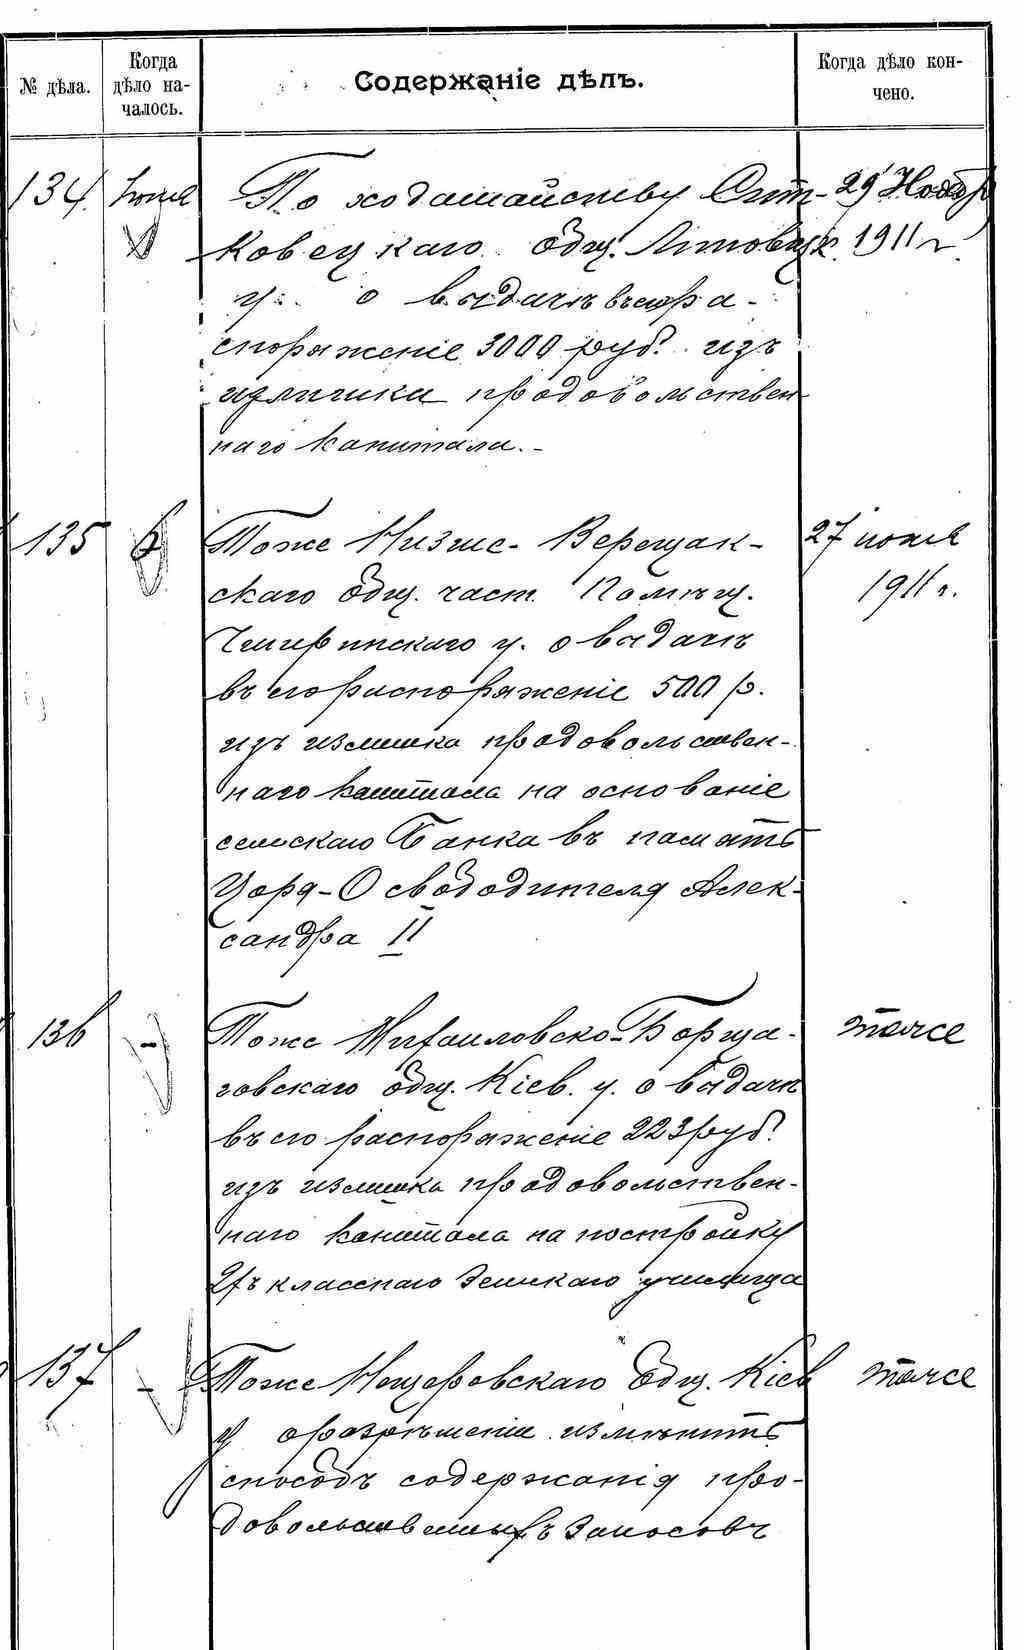 № дѣла.
Когда
дѣло на-
чалось.
Содержаніе дѣлъ.
Когда дѣло кон-
чено.
134. Іюня По ходатайству 29 Ноябр
ковецкаго общ. Липовецк. 1911 г.
у. о выдачѣ въ его ра-
споряженіе 3000 руб. изъ
излишка продовольствен
наго капитала. -
135 6 Тоже Низше-Верещак- 27 іюня
скаго общ. част. Помѣщ. 1911 г.
Чигиринскаго у. о выдачѣ
въ его распоряженіе 500 р.
изъ излишка продовольствен-
наго капитала на основаніе
сельскаго Банка въ память
Царя-Освободителя Алек-
сандра II
136 - Тоже Михаиловско-Борща- тоже
говскаго общ. Кіев. у. о выдачѣ
въ его распоряженіе 223 руб.
изъ излишка продовольствен-
наго капитала на постройку
2хъ класснаго Земскаго училища
137 - Тоже Мощеровскаго Общ. Кіев тоже
у о разрѣшеніи измѣнить
способъ содержанія про-
довольственныхъ запасовъ